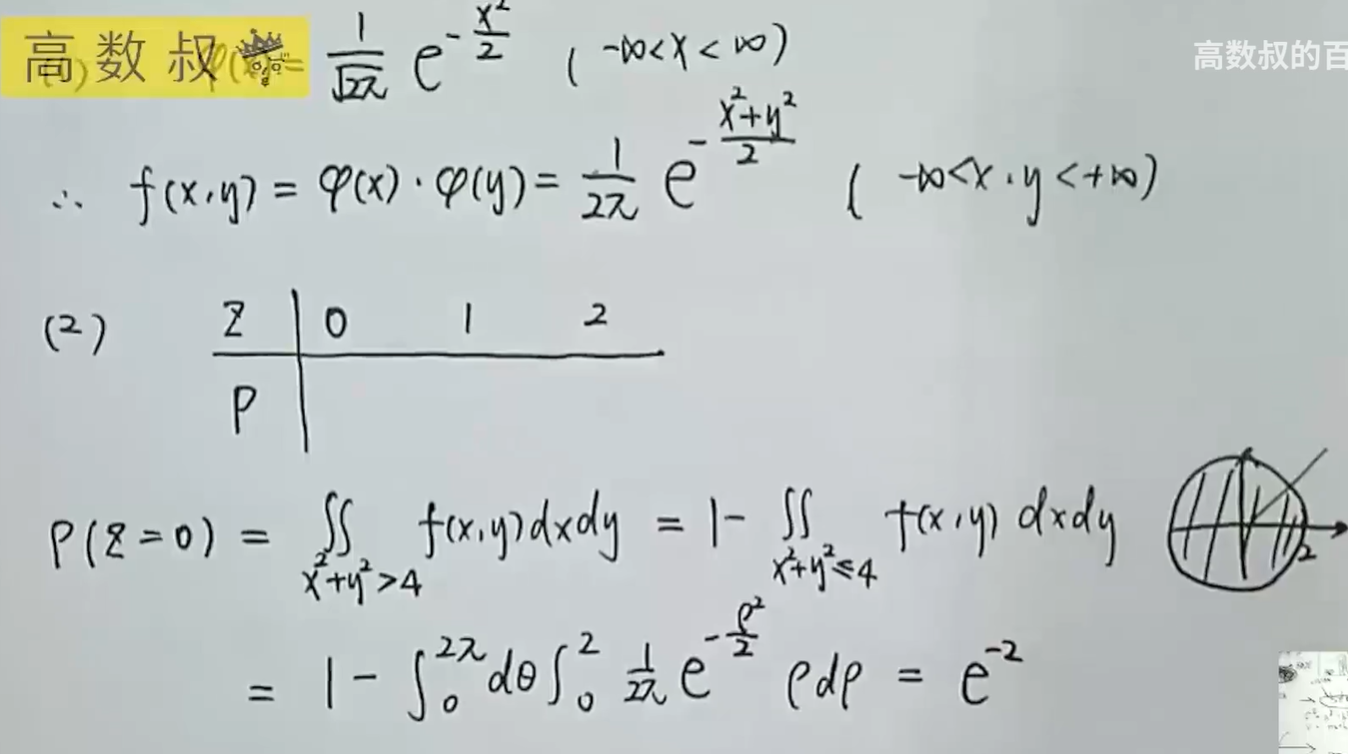 高数叔
高数叔的百
(1) φ(x) = 1/√2π e^(-x²/2) (-∞<x<∞)
∴ f(x,y) = φ(x)·φ(y) = 1/2π e^(-(x²+y²)/2) (-∞<x,y<+∞)
(2) Z | 0 1 2
P |
P(Z=0) = ∬_(x²+y²>4) f(x,y)dxdy = 1 - ∬_(x²+y²≤4) f(x,y) dxdy
2
= 1 - ∫₀^(2π) dθ ∫₀² 1/2π e^(-ρ²/2) ρdρ = e^(-2)